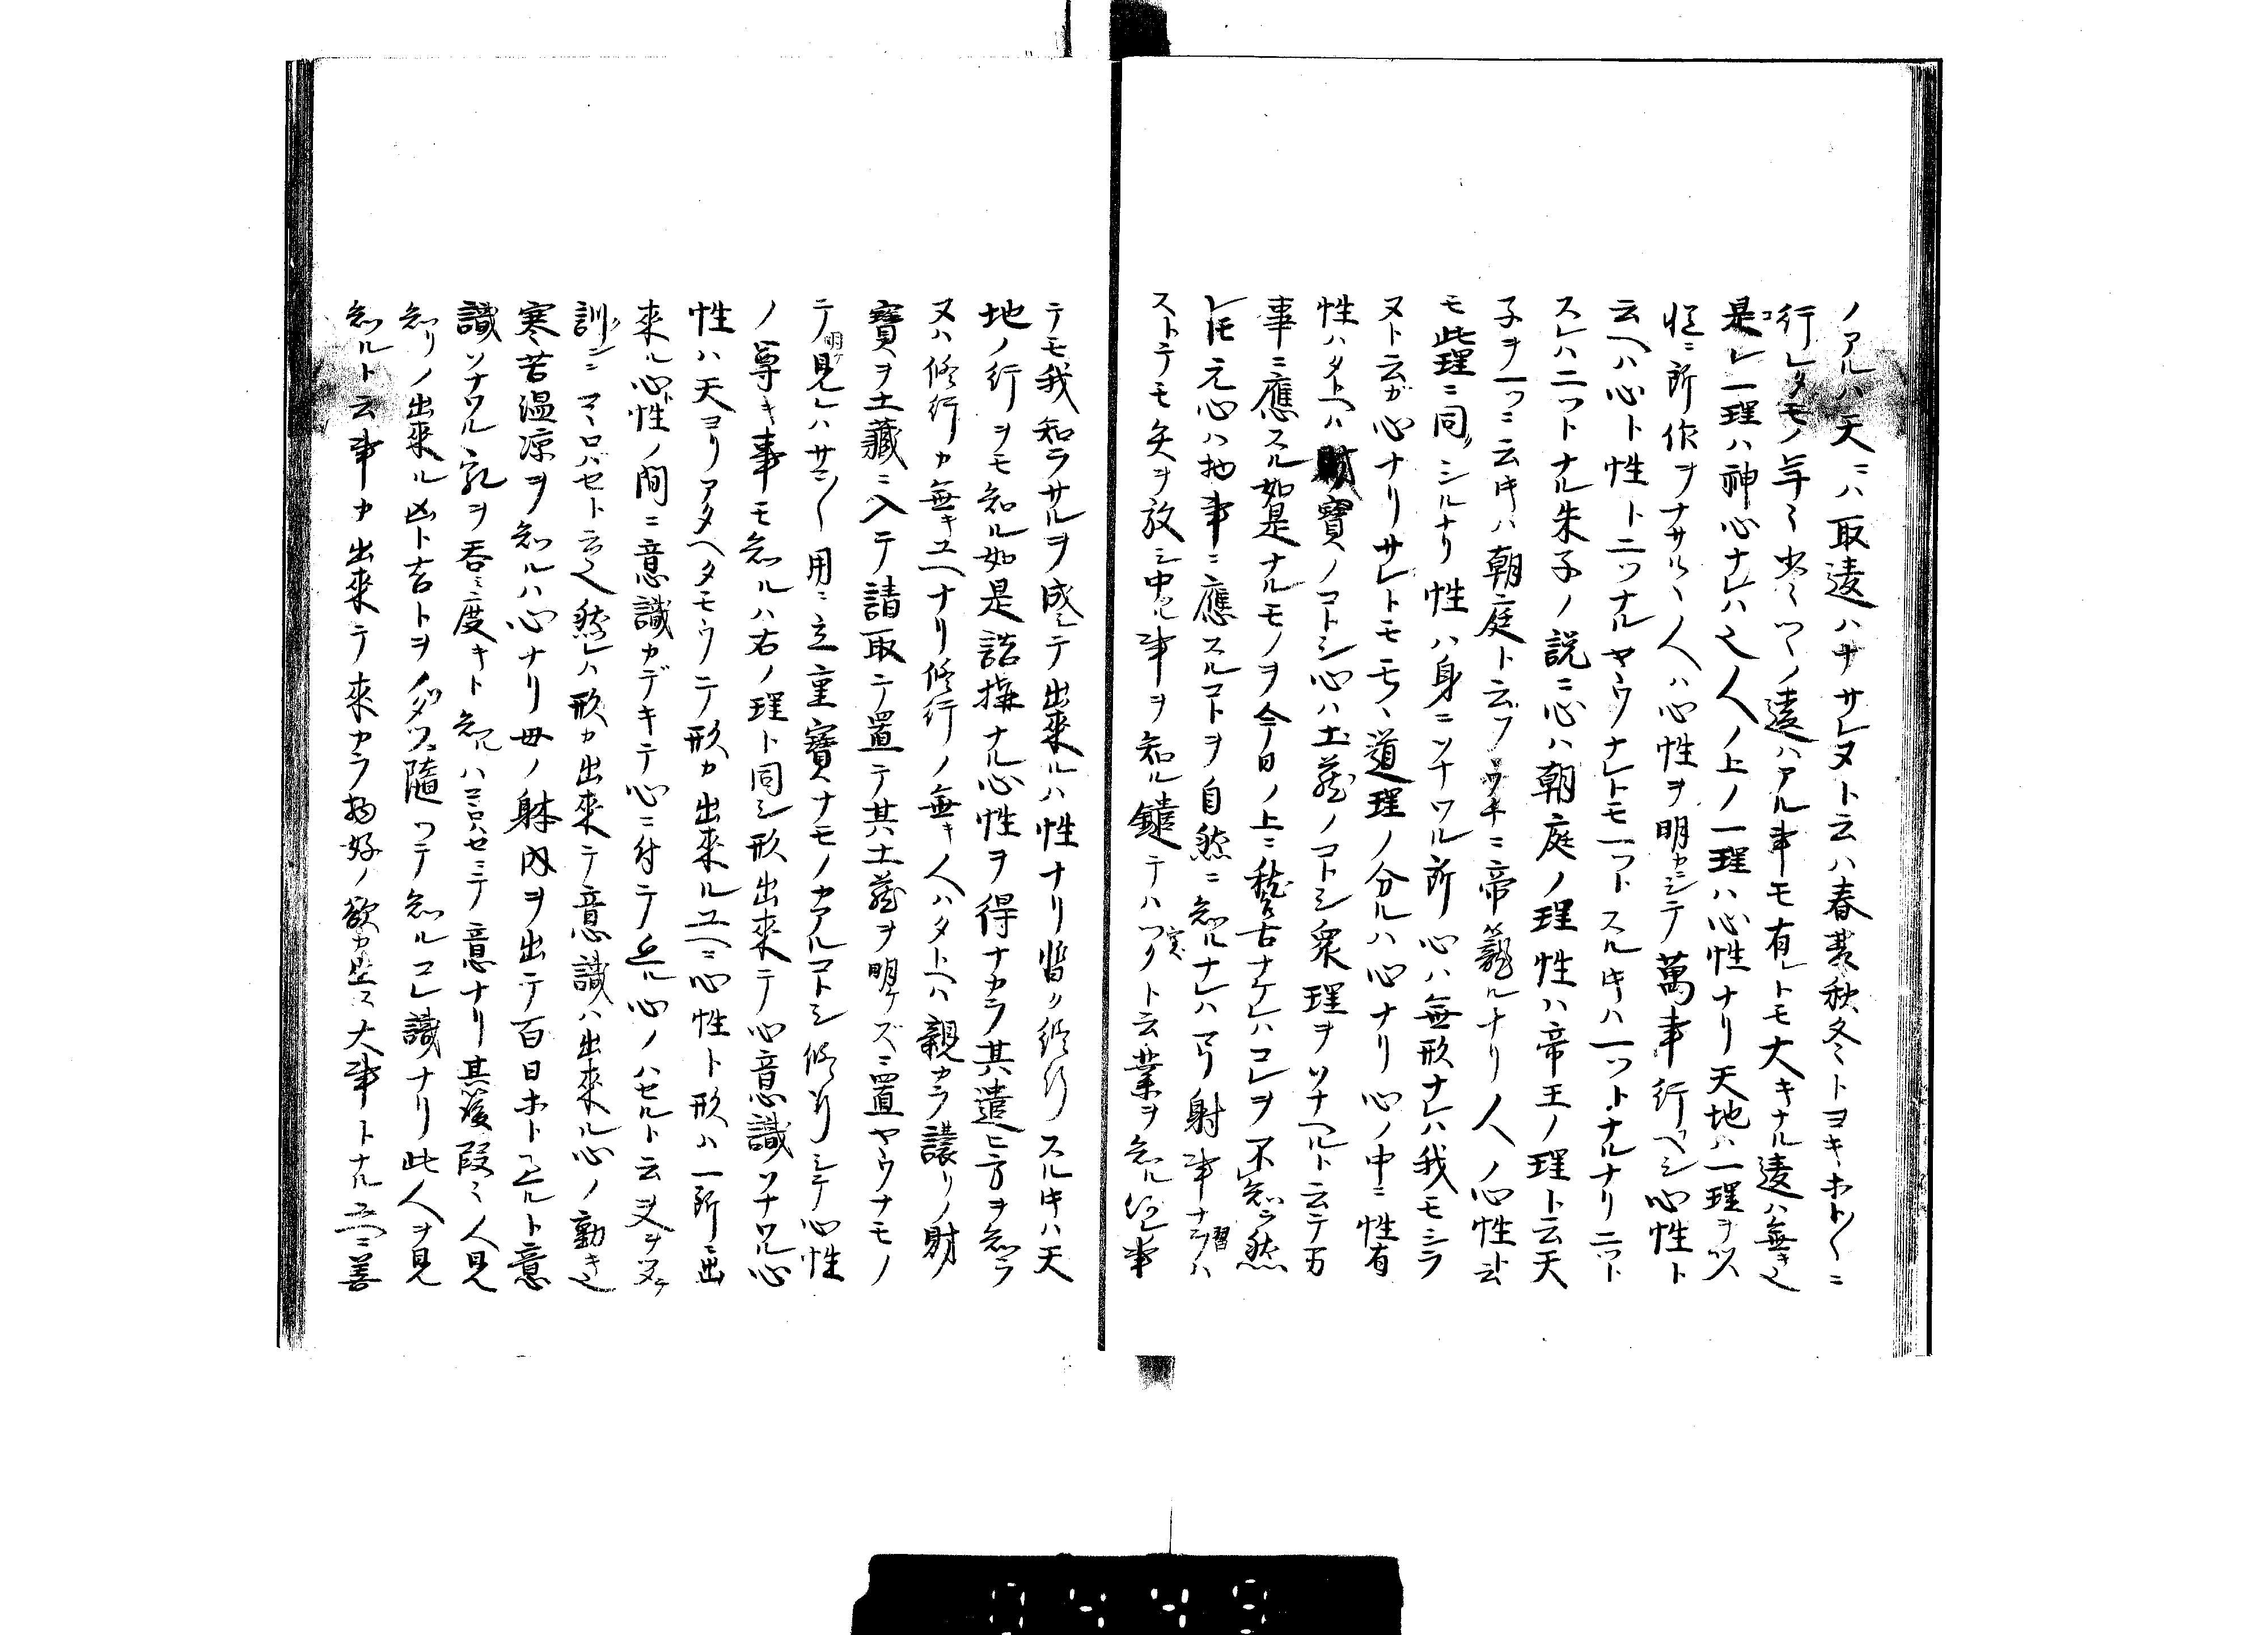 ノアルハ天ニハ取違ハナサレヌト云ハ春夏秋冬ミトヨキホト〱ニ
行レタモノ年ミ少ミツヽノ違ハアル事モ有レトモ大キナル違ハ無キ也
是レ一理ハ神心ナレハ也人ノ上ノ一理ハ心性ナリ天地ハ一理ヲ以
恒ニ所作ヲナサルヽ人ハ心性ヲ明カニシテ萬事行ヘシ心性ト
云ヘハ心ト性ト二ツナルヤウナレトモ一ツトスル時ハ一ツトナルナリ二ツト
スレハ二ツトナル朱子ノ説ニ心ハ朝庭ノ理性ハ帝王ノ理ト云天
子ヲ一ツニ云時ハ朝庭ト云フウチニ帝籠ルナリ人ノ心性ト云
モ此理ニ同シルナリ性ハ身ニソナワル所心ハ無形ナレハ我モシラ
ヌト云ガ心ナリサレトモ道理ノ分ルハ心ナリ心ノ中ニ性有
性ハタトヘハ財寶ノコトシ心ハ土蔵ノコトシ衆理ヲソナヘルト云テ万
事ニ應スル如是ナルモノヲ今日ノ上ニ稽古ナケレハコレヲ不知ラ然
レ𪜈元心ハ物事ニ應スルコトヲ自然ニ知ルナレハナリ射事ナラハ
ストテモ矢ヲ放シ中ル事ヲ知ル鑓テハツクト云業ヲ知ル何レ事
テモ我知ラサルヲ成シテ出来ルハ性ナリ皆々修行スル時ハ天
地ノ行ヲモ知ル如是結構ナル心性ヲ得ナカラ其遣ヒ方ヲ知ラ
ヌハ修行カ無キユヘナリ修行ノ無キ人ハタトヘハ親カラ譲リノ財
寶ヲ土藏ニ入テ請取テ置テ其土蔵ヲ明ケズニ置ヤウナモノ
明ケテ見レハサマ〱用ニ立重寶ナモノカアルコトシ修行シテ心性
ノ尊キ事モ知ルハ右ノ理ト同シ形出来テ心意識ソナワル心
性ハ天ヨリアタヘタモウテ形カ出来ルユヘニ心性ト形ハ一所ニ出
来ル心ト性ノ間ニ意識カデキテ心ニ付テ廻ル心ノハセルト云
訓シニコヽロバセト云也然レハ形カ出来テ意識ハ出来ル心ノ動キ也
寒苦温凉ヲ知ルハ心ナリ母ノ躰内ヲ出テ百日ホト立ルト意
識ソナワル乳ヲ呑ミ度キト知ルハコヽロハセニテ意ナリ其後段ミ人見
知リノ出来ル凶ト吉トヲ隨ツテ知ルコレ識ナリ此人ヲ見
知ルト云事カ出来テ来カラ物好ノ欲カ生ス大事トナルユヘニ善